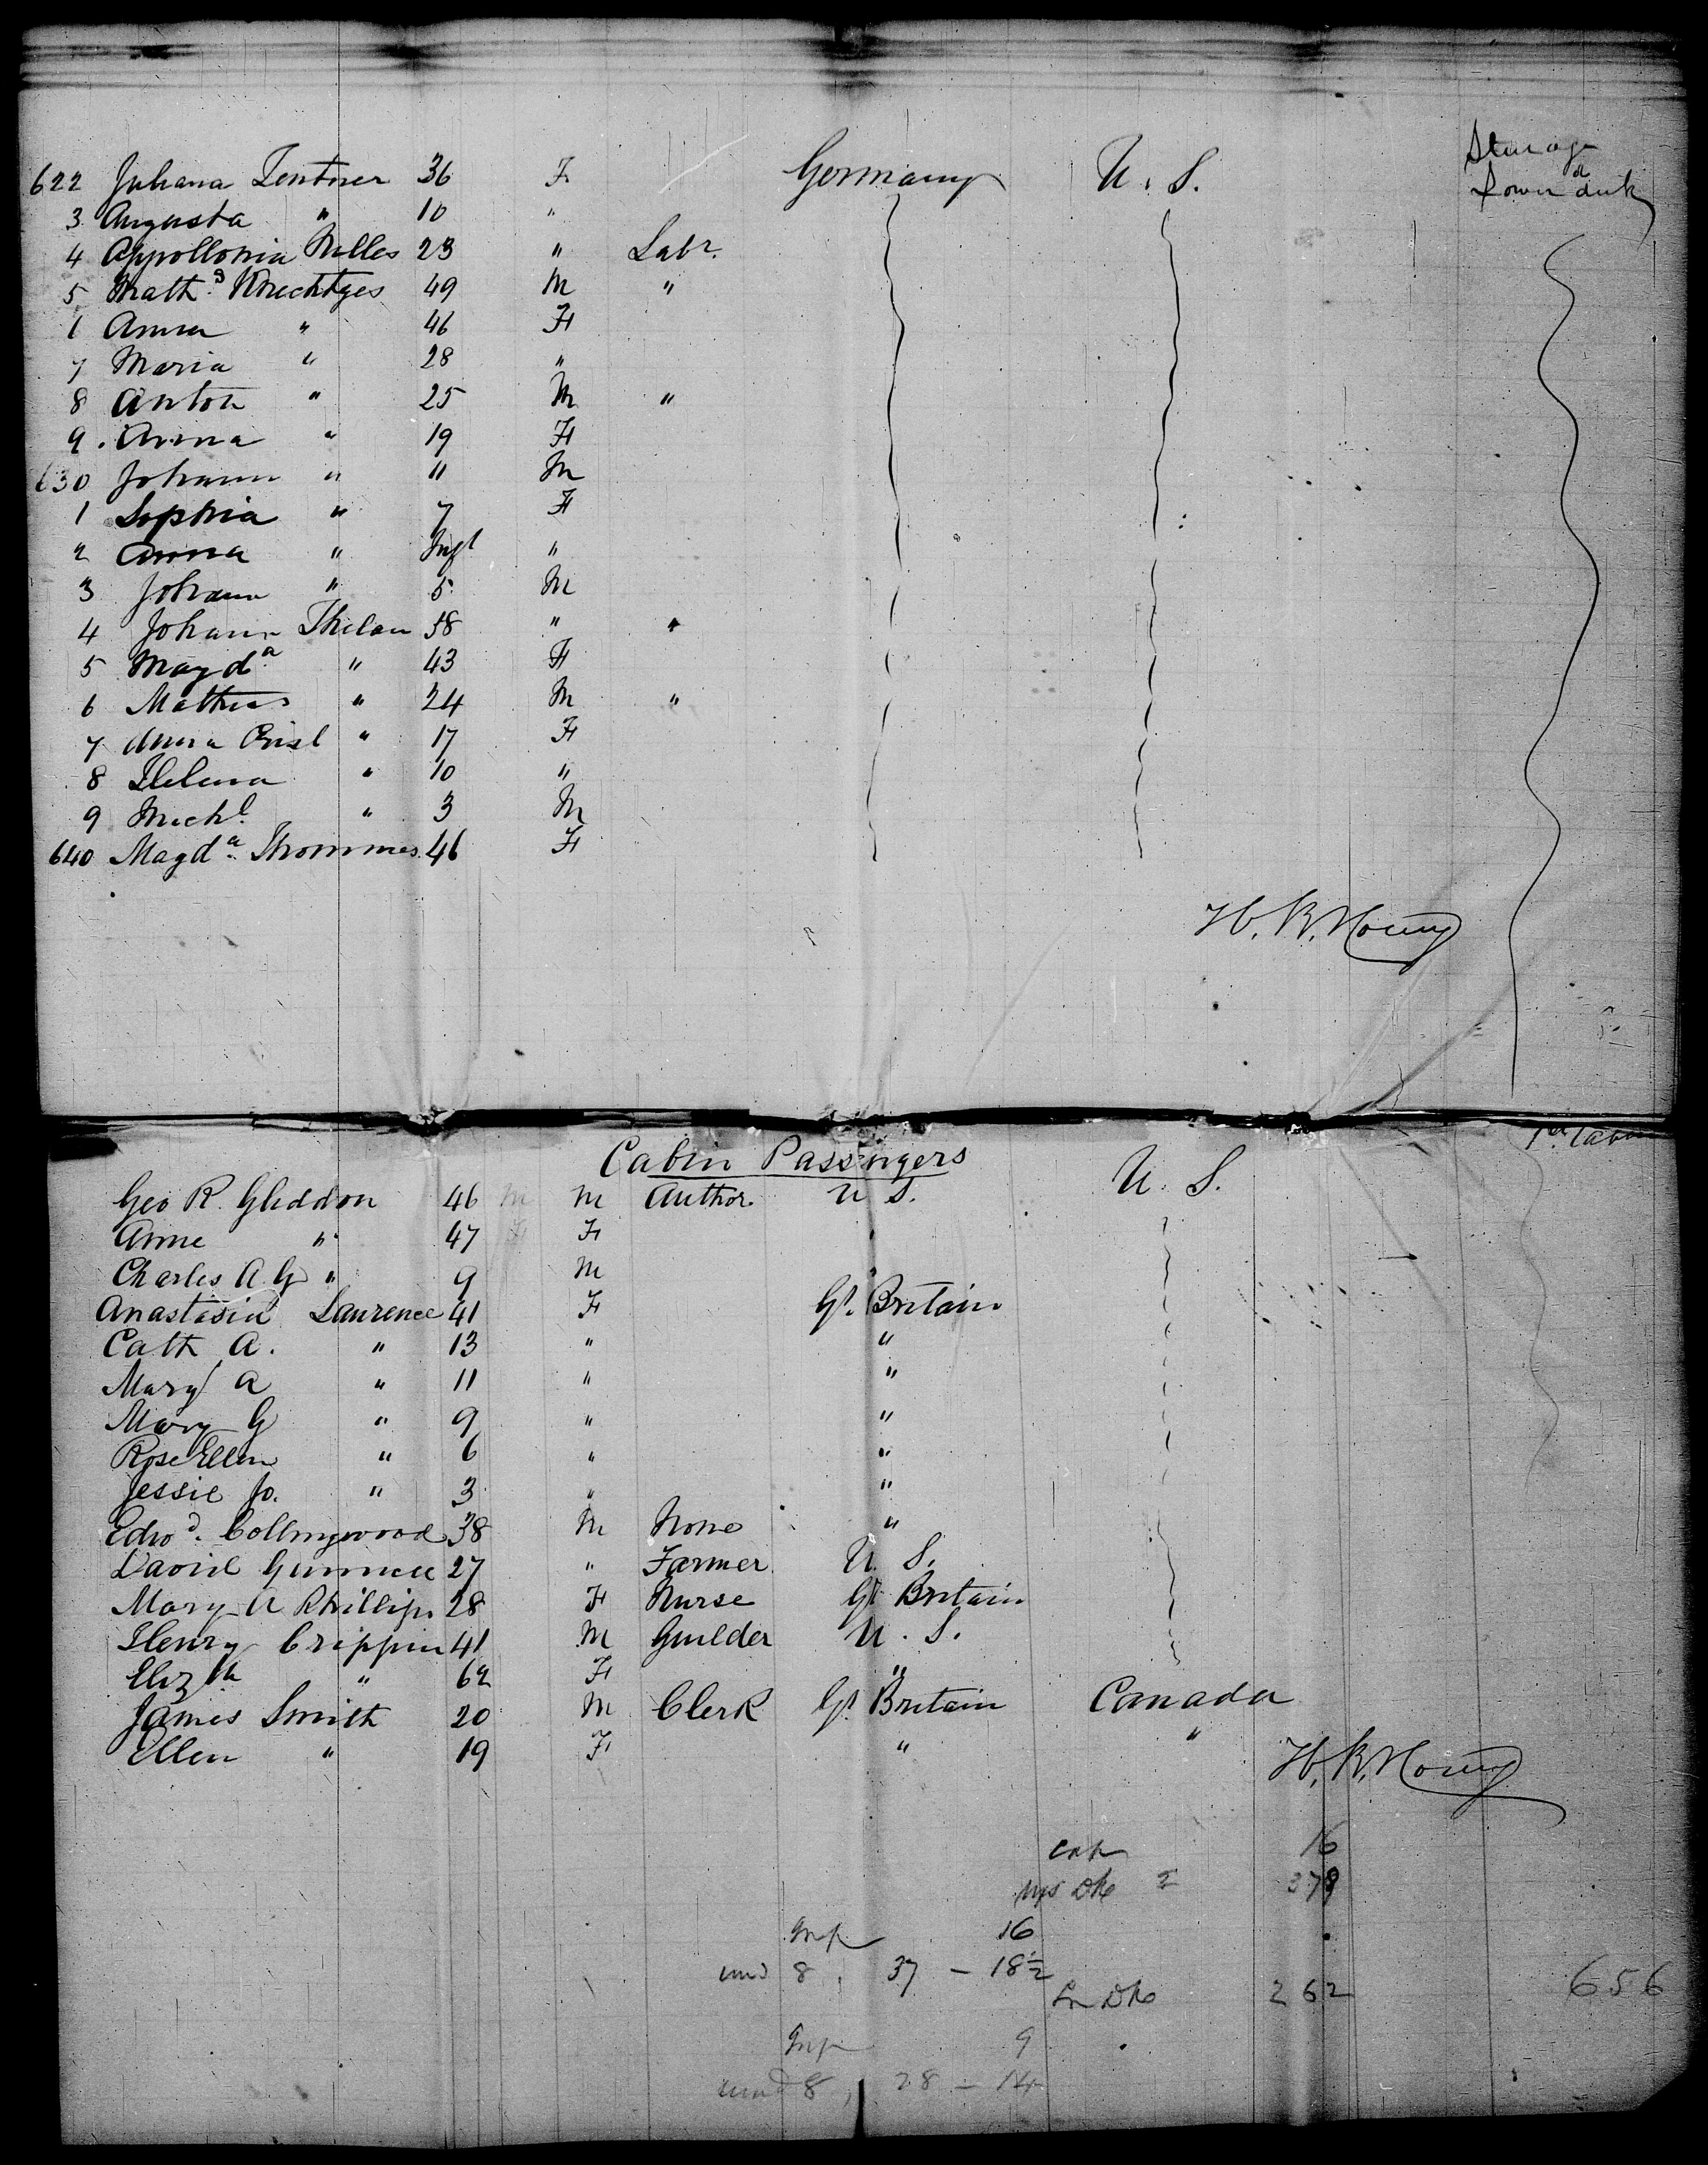 622 Juhana Lentner 36 F. Germany U. S. Steerage
Lower deck
3 Augusta " 10 "
4 Appollonia Nilles 23 " Labr.
5 Maths Knechtges 49 M "
1 Anna " 46 F
7 Maria " 28 "
8 Anton " 25 M "
9. Anna " 19 F
630 Johann " 11 M
1 Sophia " 7 F
2 Anna " Inft "
3 Johann " 5 M
4 Johann Thelan 58 " "
5 Magda " 43 F
6 Mathias " 24 M "
7 Anna Crisl " 17 F
8 Helena " 10 "
9 Michl " 3 M
640 Magda Thommes. 46 F
Cabin Passengers
Geo R. Gliddon 46 M M Author. U S. U. S.
Anne " 47 F F "
Charles A G " 9 M "
Anastasia Laurence 41 F Gt. Britain
Cath A. " 13 " "
Mary A " 11 " "
Mary G " 9 " "
Rose Ellen " 6 " "
Jessie Jo. " 3 " "
Edwd. Collingwood 38 M None "
David 27 " Farmer U. S.
Mary A Phillips 28 F Nurse Gt Britain
Henry Crippin 41 M Guilder U. S.
Elizth " 62 F "
James Smith 20 M Clerk Gt. Britain Canada
Ellen " 19 F " "
16
378
16
und 8, 37 – 18½
262 656
9
und 8, 28 – 14